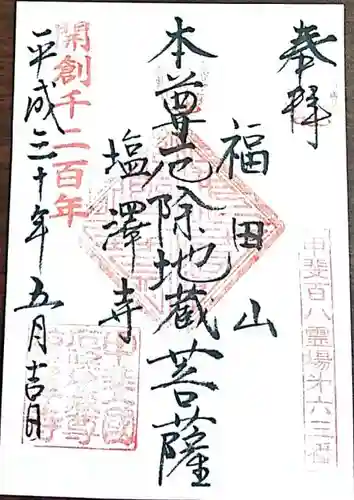 奉拝
甲斐百八霊場第六三番
福田山
本尊厄除地蔵菩薩
塩澤寺
開創千二百年
平成三十年五月吉日